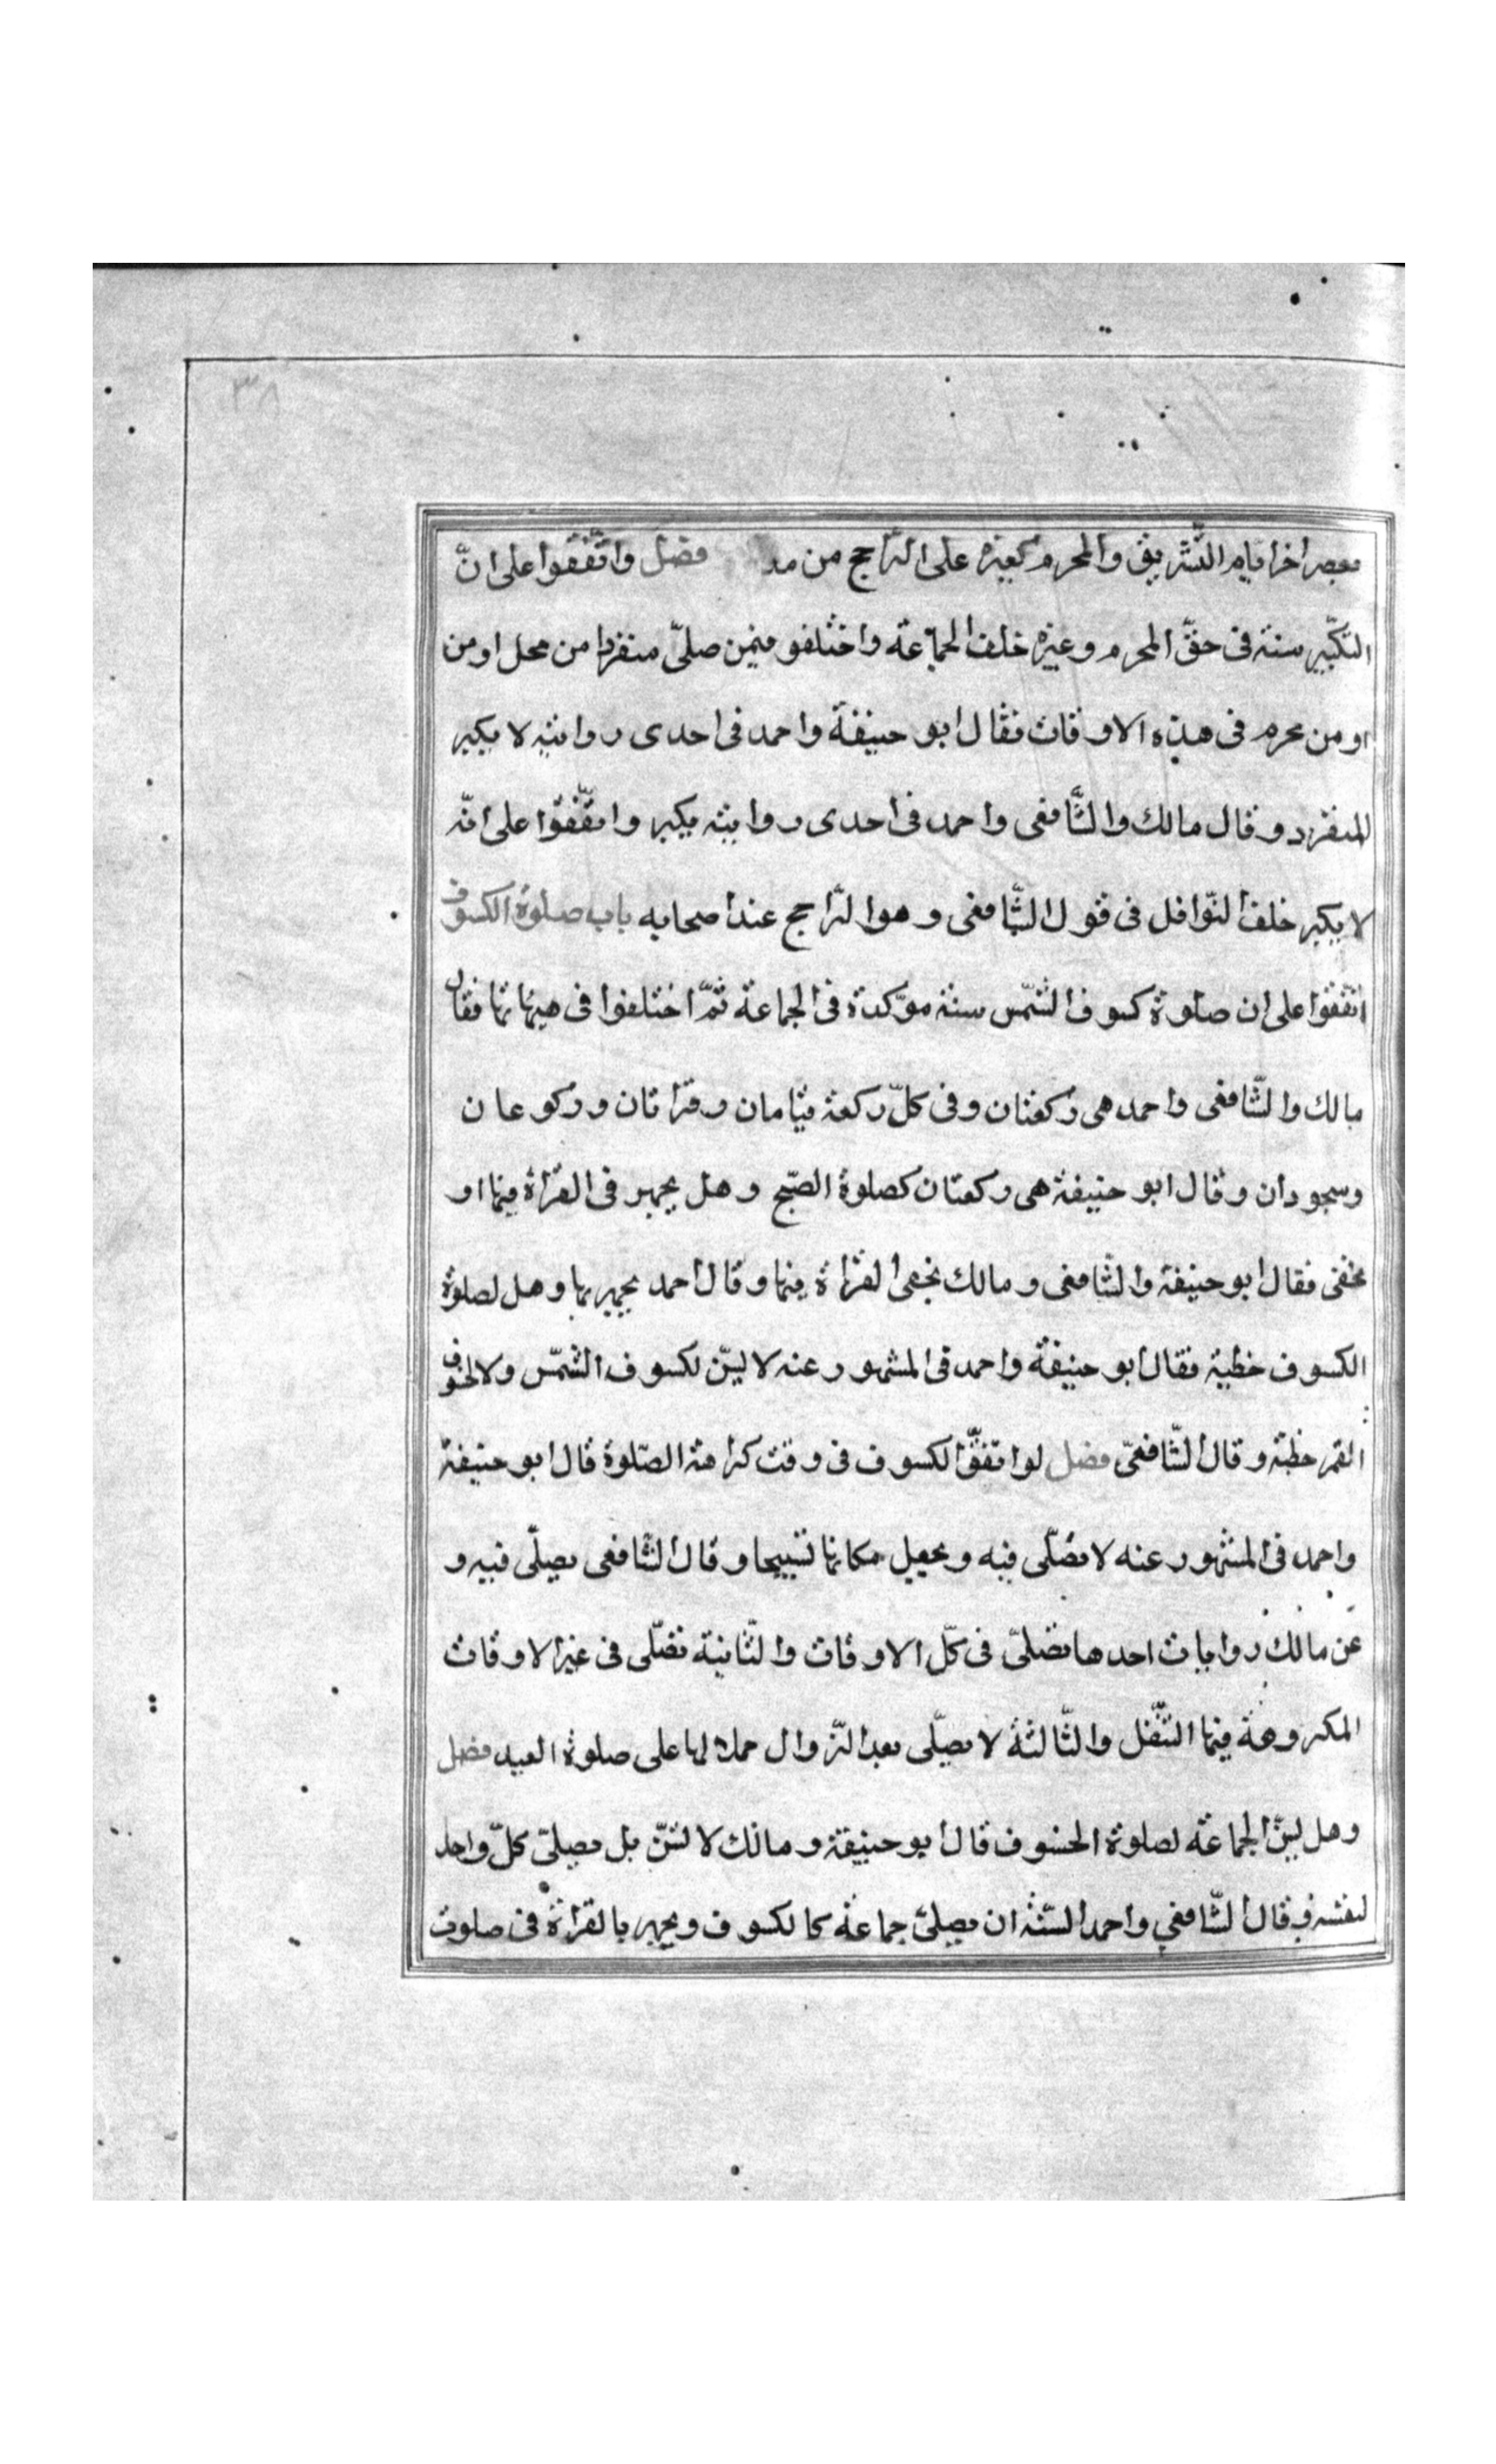 ٣٨
بعصر اخر ايام التشريق والمحرم كغيره على الراجح من مذ فصل واتفقوا على انّ
التكبير سنة فى حقّ المحرم وغيره خلف الجماعة واختلفو فيمن صلىّ منفردا من محل او من
او من محرم فى هذه الاوقات فقال ابو حنيفة واحمد فى احدى روايتيه لا يكبر
المنفرد وقال مالك والشّافعى واحمد فى احدى روايتيه يكبر واتّفقوا على انّه
لا يكبر خلف النّوافل فى قول الشّافعى وهو الرّاجح عند اصحابه باب صلوة الكسوف
اتفقوا على ان صلوة كسوف الشّمس سنة موكّدة فى الجماعة ثمّ اختلفوا فى هيئاتها فقال
مالك والشّافعى واحمد هى ركعتان وفى كلّ ركعة قيامان وقراتان وركوعان
وسجودان وقال ابو حنيفة هى ركعتان كصلوة الصّبح وهل يجهر فى القراة فيها او
يخفى فقال ابو حنيفة والشّافعى ومالك يخفى القراة فيها وقال احمد يجهر بها وهل لصلوة
الكسوف خطبة فقال ابو حنيفة واحمد فى المشهور عنه لا ليسّ لكسوف الشّمس ولا لخسوف
القمر خطبة وقال الشّافعىّ فصل لو اتفقّ الكسوف فى وقت كراهة الصّلوة قال ابو حنيفة
واحمد فى المشهور عنه لا تصلّى فيه ويجعل مكانها تسبيحا وقال الشّافعى يصلّى فيه و
عن مالك روايات احدها تصلىّ فى كلّ الاوقات والثّانية تصلّى فى غير الاوقات
المكروهة فيها التّنفّل والثّالثة لا يصلّى بعد الزّوال حملا لها على صلوة العيد فصل
وهل ليسنّ الجماعة لصلوة الخسوف قال ابو حنيفة ومالك لا تسنّ بل يصلىّ كلّ واحد
لنفسه وقال الشّافعي واحمد السّنّة ان يصلىّ جماعة كالكسوف ويجهر بالقراة فى صلوة